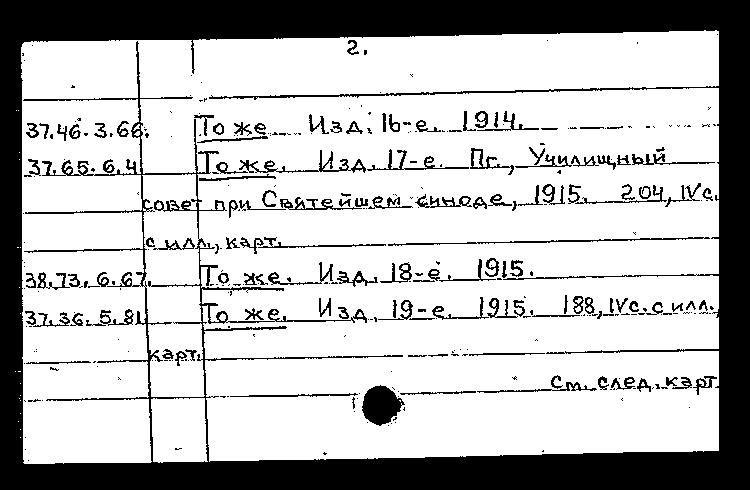 2.
37.46.3.66. То же Изд. 16-е. 1914.
37.65.6.4 То же. Изд. 17-е. Пг., Училищный
совет при Святейшем синоде, 1915. 204, IV с.
с илл., карт.
38.73.6.67. То же. Изд. 18-е. 1915.
37.36.5.81 То же. Изд. 19-е. 1915. 188, IV с. с илл.,
карт.
См. след. карт